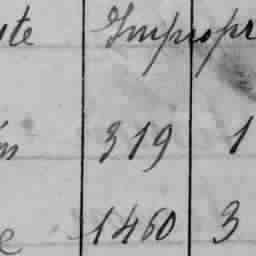 ute Impropr
319 1
e 1460 3